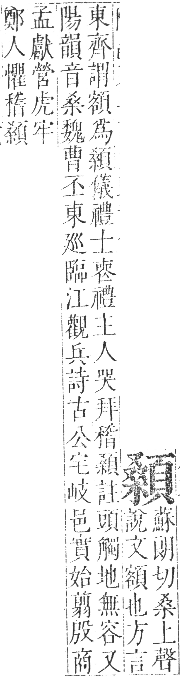 顙
蘇朗切桑上聲
說文額也方言
東齊謂額爲顙儀禮士喪禮主人哭拜稽顙註頭觸地無容又
陽韻音桑魏曹丕東廵臨江觀兵詩古公宅岐邑實始翦殷商
孟獻營虎牢
鄭人懼稽顙